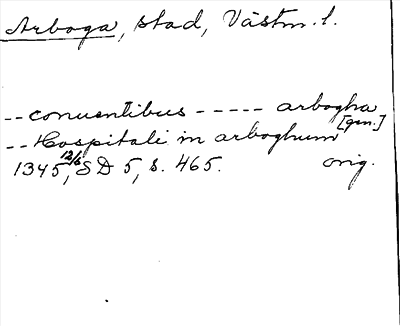 Arboga, stad, Västm. l.
-- conuentibus ----- arbogha [gen.]
-- Hospitali in arboghum
1345 12/6, SD 5, s. 465. orig.